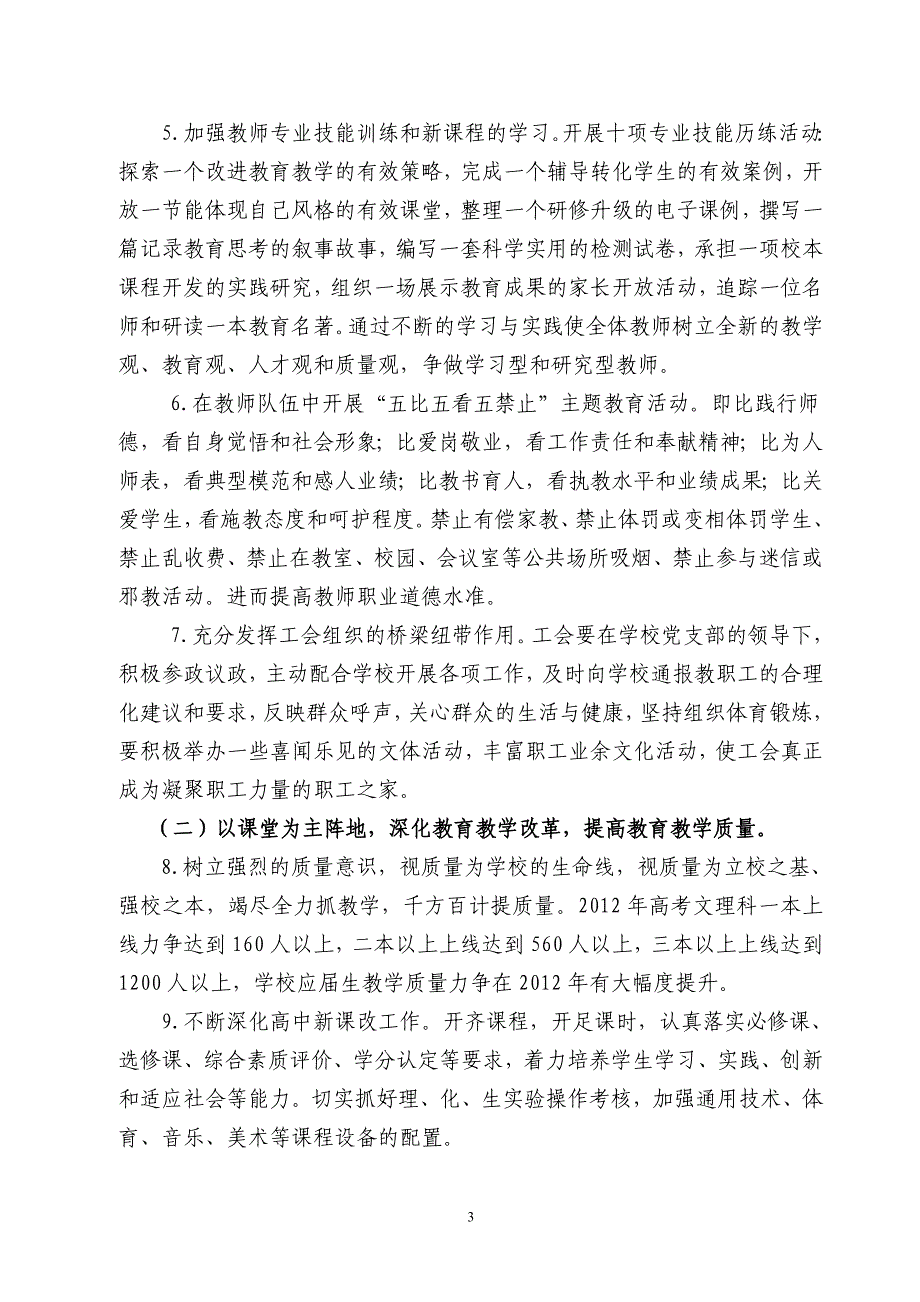 5.加强教师专业技能训练和新课程的学习。开展十项专业技能历练活动:
探索一个改进教育教学的有效策略，完成一个辅导转化学生的有效案例，开
放一节能体现自己风格的有效课堂，整理一个研修升级的电子课例，撰写一
篇记录教育思考的叙事故事，编写一套科学实用的检测试卷，承担一项校本
课程开发的实践研究，组织一场展示教育成果的家长开放活动，追踪一位名
师和研读一本教育名著。通过不断的学习与实践使全体教师树立全新的教学
观、教育观、人才观和质量观，争做学习型和研究型教师。
6.在教师队伍中开展“五比五看五禁止”主题教育活动。即比践行师
德，看自身觉悟和社会形象；比爱岗敬业，看工作责任和奉献精神；比为人
师表，看典型模范和感人业绩；比教书育人，看执教水平和业绩成果；比关
爱学生，看施教态度和呵护程度。禁止有偿家教、禁止体罚或变相体罚学生、
禁止乱收费、禁止在教室、校园、会议室等公共场所吸烟、禁止参与迷信或
邪教活动。进而提高教师职业道德水准。
7.充分发挥工会组织的桥梁纽带作用。工会要在学校党支部的领导下，
积极参政议政，主动配合学校开展各项工作，及时向学校通报教职工的合理
化建议和要求，反映群众呼声，关心群众的生活与健康，坚持组织体育锻炼，
要积极举办一些喜闻乐见的文体活动，丰富职工业余文化活动，使工会真正
成为凝聚职工力量的职工之家。
（二）以课堂为主阵地，深化教育教学改革，提高教育教学质量。
8.树立强烈的质量意识，视质量为学校的生命线，视质量为立校之基、
强校之本，竭尽全力抓教学，千方百计提质量。2012年高考文理科一本上
线力争达到160人以上，二本以上上线达到560人以上，三本以上上线达到
1200人以上，学校应届生教学质量力争在2012年有大幅度提升。
9.不断深化高中新课改工作。开齐课程，开足课时，认真落实必修课、
选修课、综合素质评价、学分认定等要求，着力培养学生学习、实践、创新
和适应社会等能力。切实抓好理、化、生实验操作考核，加强通用技术、体
育、音乐、美术等课程设备的配置。
3